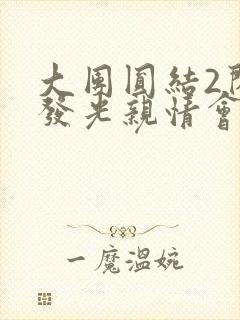 大團圓結2
發光親情會
一魔溫婉